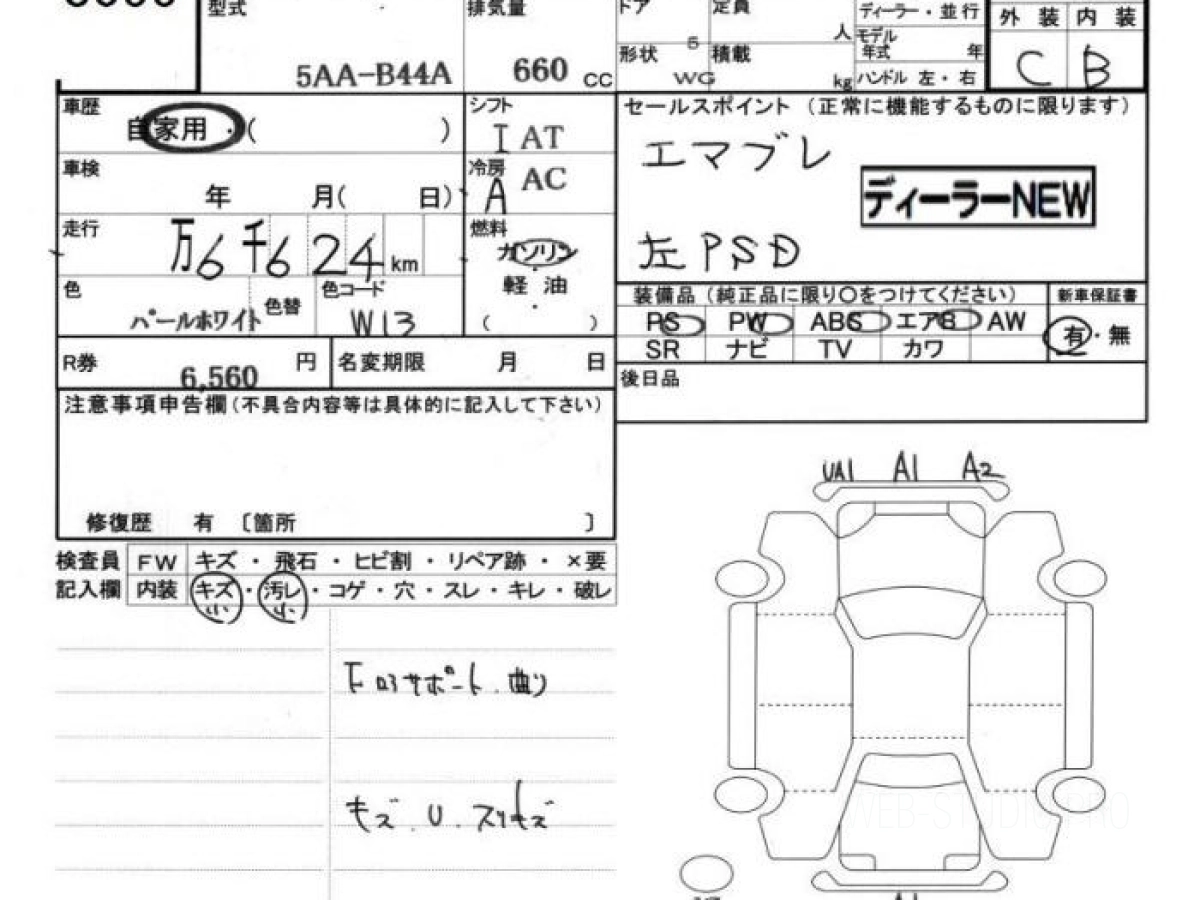 型式 排気量 ドア 定員 人 ディーラー・並行
モデル年式 年
外装 内装
5AA-B44A 660 CC
形状 5 WG 積載 kg ハンドル 左・右
C B
車歴 自家用・( )
シフト I AT
セールスポイント (正常に機能するものに限ります)
エマブレ
ディーラーNEW
左PSD
車検 年 月( 日)
冷房 A AC
走行 万6千624km
燃料 ガソリン・軽油・( )
色 パールホワイト 色替 色コード W13
装備品(純正品に限り〇をつけてください) 新車保証書
PS PW ABS エアB AW 有・無
SR ナビ TV カワ
R券 6,560 円 名変期限 月 日
後日品
注意事項申告欄(不具合内容等は具体的に記入して下さい)
修復歴 有 〔箇所 〕
UA1 A1 A2
検査員 FW キズ・飛石・ヒビ割・リペア跡・×要
記入欄 内装 キズ・汚レ・コゲ・穴・スレ・キレ・破レ
小 小
下 サポート、曲り
キズ、U、スリキズ
WEB-STUDIO.PRO